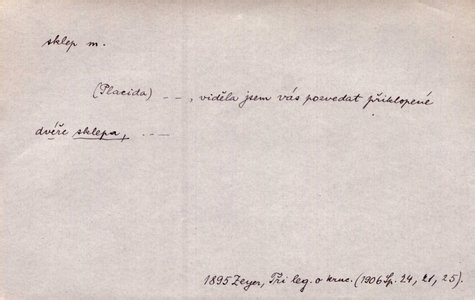 sklep m.
(Placida) – – , viděla jsem vás pozvedat přiklopené
dvéře sklepa, – – –
1895 Zeyer, Tři leg. o kruc. (1906 Sp. 24, 21, 25).